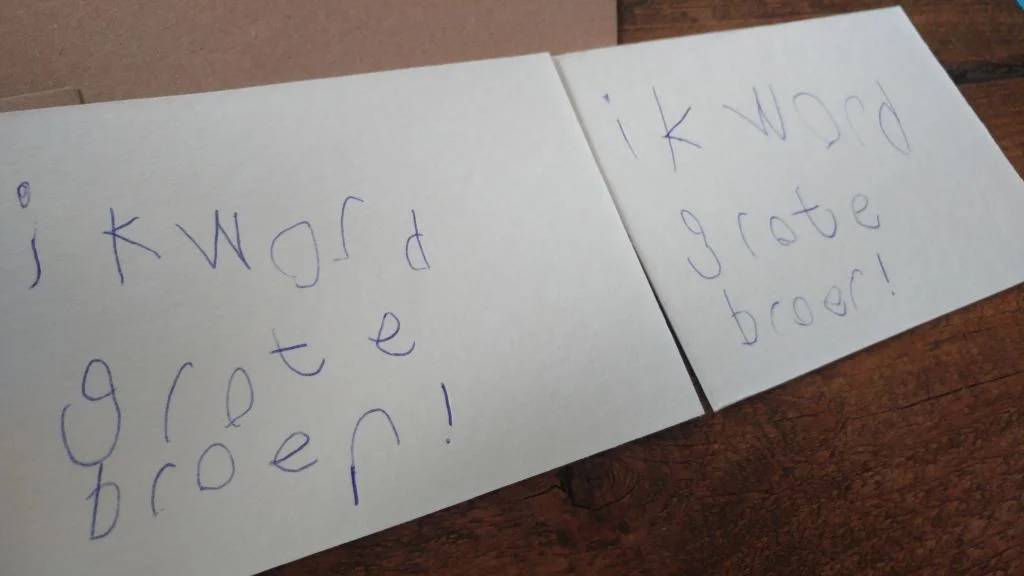 ik word
grote
broer!
ik word
grote
broer!